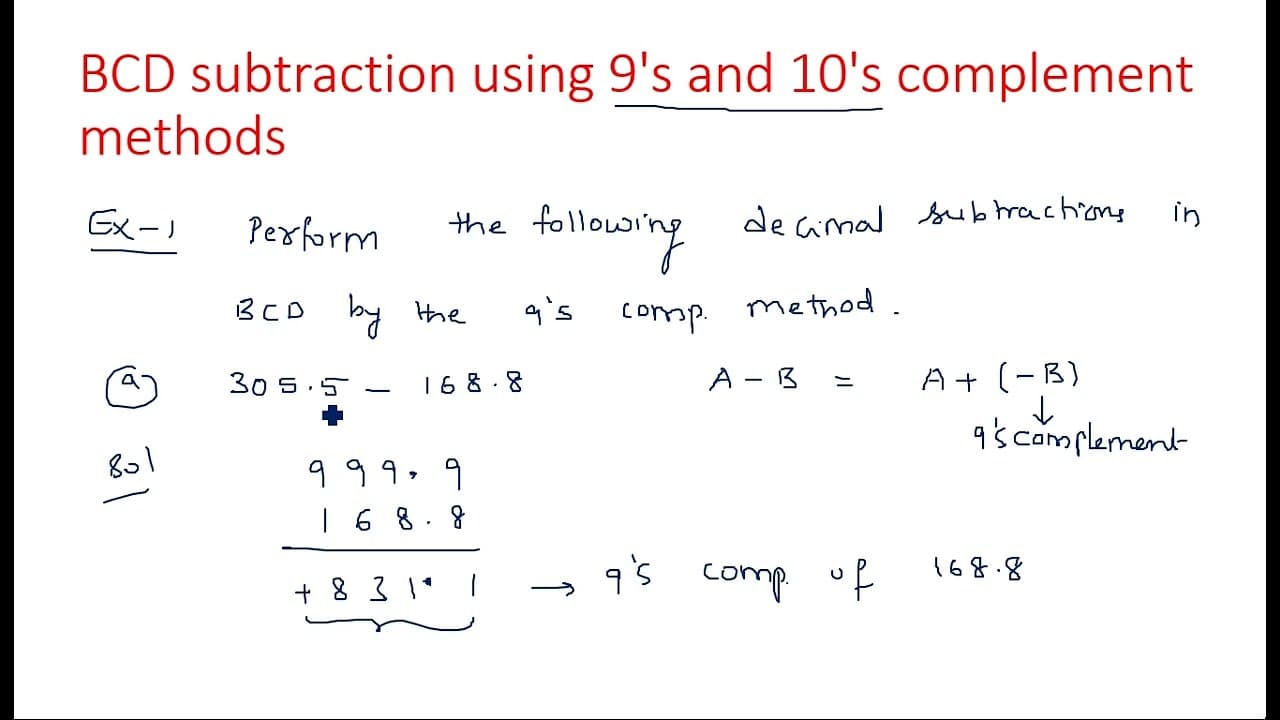 BCD subtraction using 9's and 10's complement
methods
Ex-1 Perform the following decimal subtractions in
BCD by the 9's comp. method.
(a) 305.5 - 168.8 A - B = A + (-B)
↓
9's complement
Sol 999.9
168.8
+831.1 → 9's comp. of 168.8